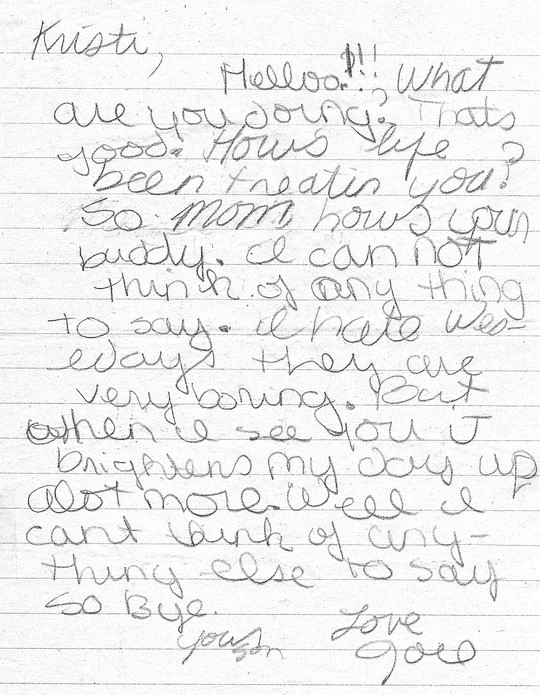 Kristi,
Helloo!!!, What
are you doing? Thats
good. Hows life
been treatin you?
So mom hows your
buddy. I can not
think of any thing
to say. I hate Wes-
edays they are
very boring. But
when I see you it
brightens my day up
alot more. Well I
cant think of any-
thing else to say
so Bye.
Love
Your son